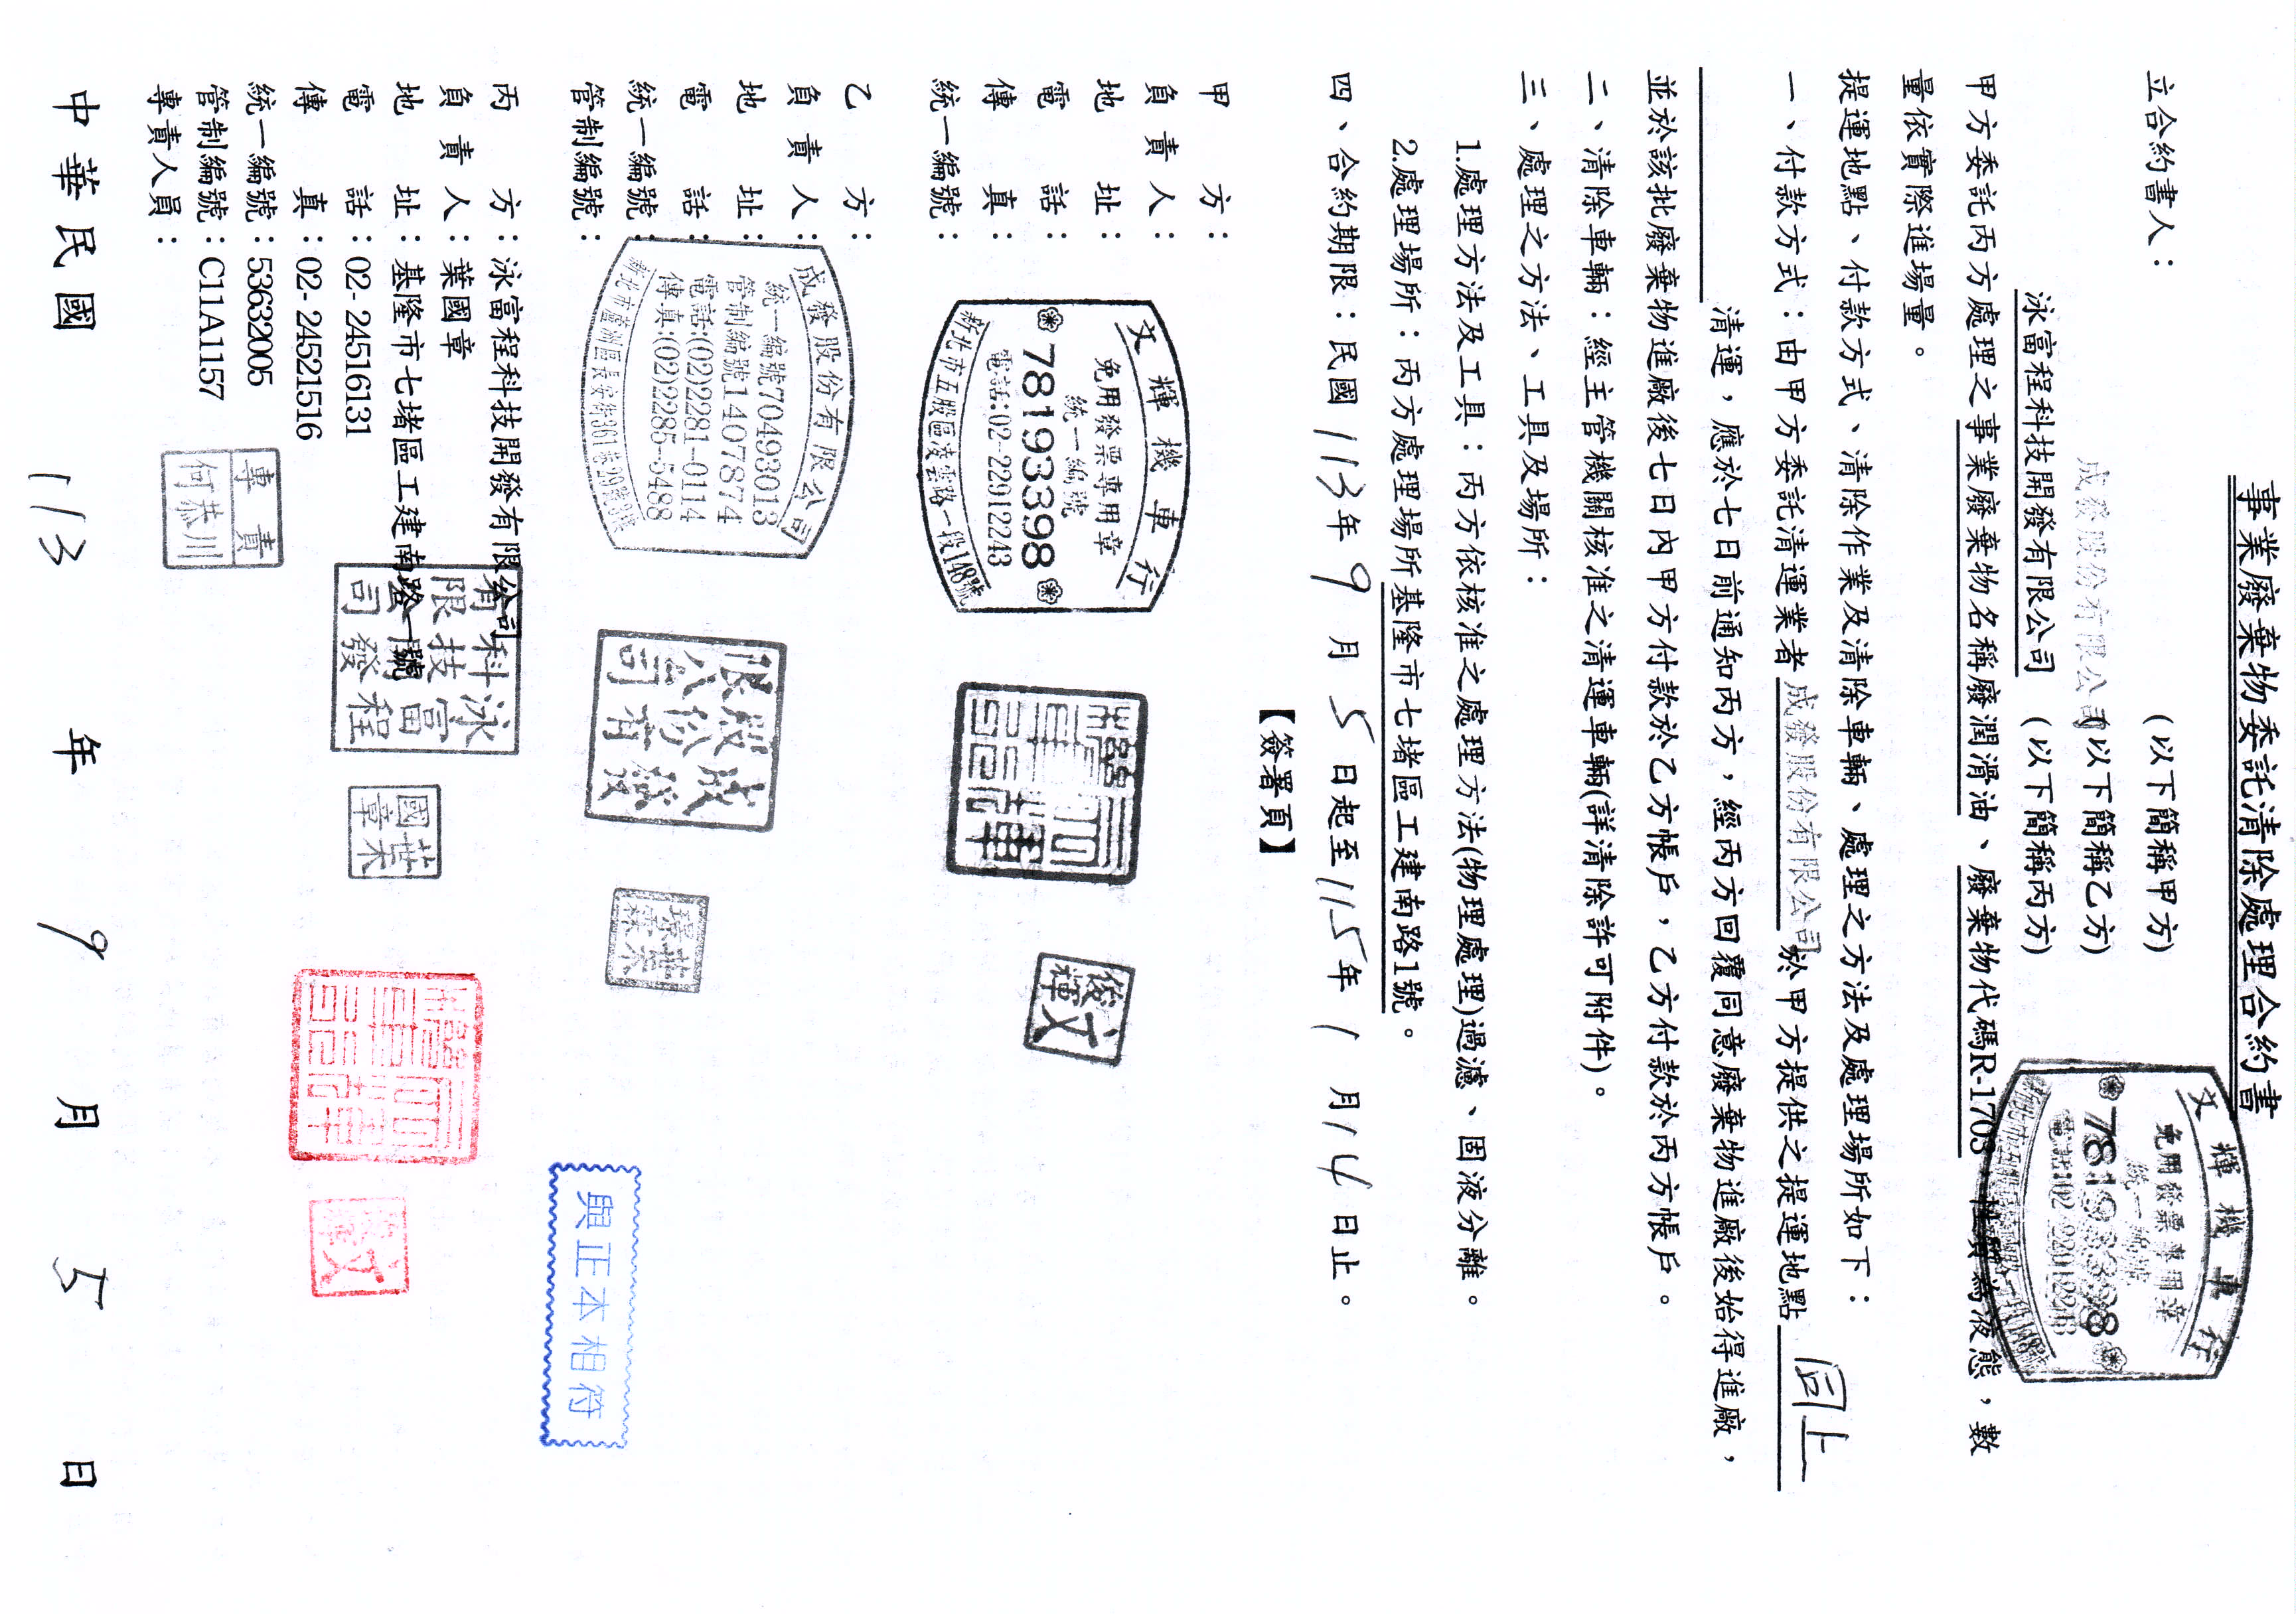 事業廢棄物委託清除處理合約書
立合約書人：
(以下簡稱甲方)
成發股份有限公司(以下簡稱乙方)
泳富程科技開發有限公司(以下簡稱丙方)
文輝機車行
免用發票專用章
統一編號
78193398
電話:02-22912243
新北市五股區凌雲路一段148號
甲方委託丙方處理之事業廢棄物名稱廢潤滑油、廢棄物代碼R-1703 性質為液態，數
量依實際進場量。
提運地點、付款方式、清除作業及清除車輛、處理之方法及處理場所如下：
一、付款方式：由甲方委託清運業者成發股份有限公司於甲方提供之提運地點 同上
清運，應於七日前通知丙方，經丙方回覆同意廢棄物進廠後始得進廠，
並於該批廢棄物進廠後七日內甲方付款於乙方帳戶，乙方付款於丙方帳戶。
二、清除車輛：經主管機關核准之清運車輛(詳清除許可附件)。
三、處理之方法、工具及場所：
1.處理方法及工具：丙方依核准之處理方法(物理處理)過濾、固液分離。
2.處理場所：丙方處理場所基隆市七堵區工建南路1號。
四、合約期限：民國113年9月5日起至115年1月14日止。
【簽署頁】
甲方：
負責人：
地址：
電話：
傳真：
統一編號：
文輝機車行
免用發票專用章
統一編號
78193398
電話:02-22912243
新北市五股區凌雲路一段148號
俊輝文
乙方：
負責人：
地址：
電話：
統一編號：
管制編號：
成發股份有限公司
統一編號70493013
管制編號1407874
電話:(02)2281-0114
傳真:(02)2285-5488
新北市蘆洲區長安街361巷29號
成發股份有限公司
丙方：泳富程科技開發有限公司
負責人：葉國章
地址：基隆市七堵區工建南路一號
電話：02- 24516131
傳真：02- 24521516
統一編號：53632005
管制編號：C11A1157
專責人員：
專責
何恭川
泳富程科技開發有限公司
葉國章
與正本相符
中華民國 113 年 9 月 5 日